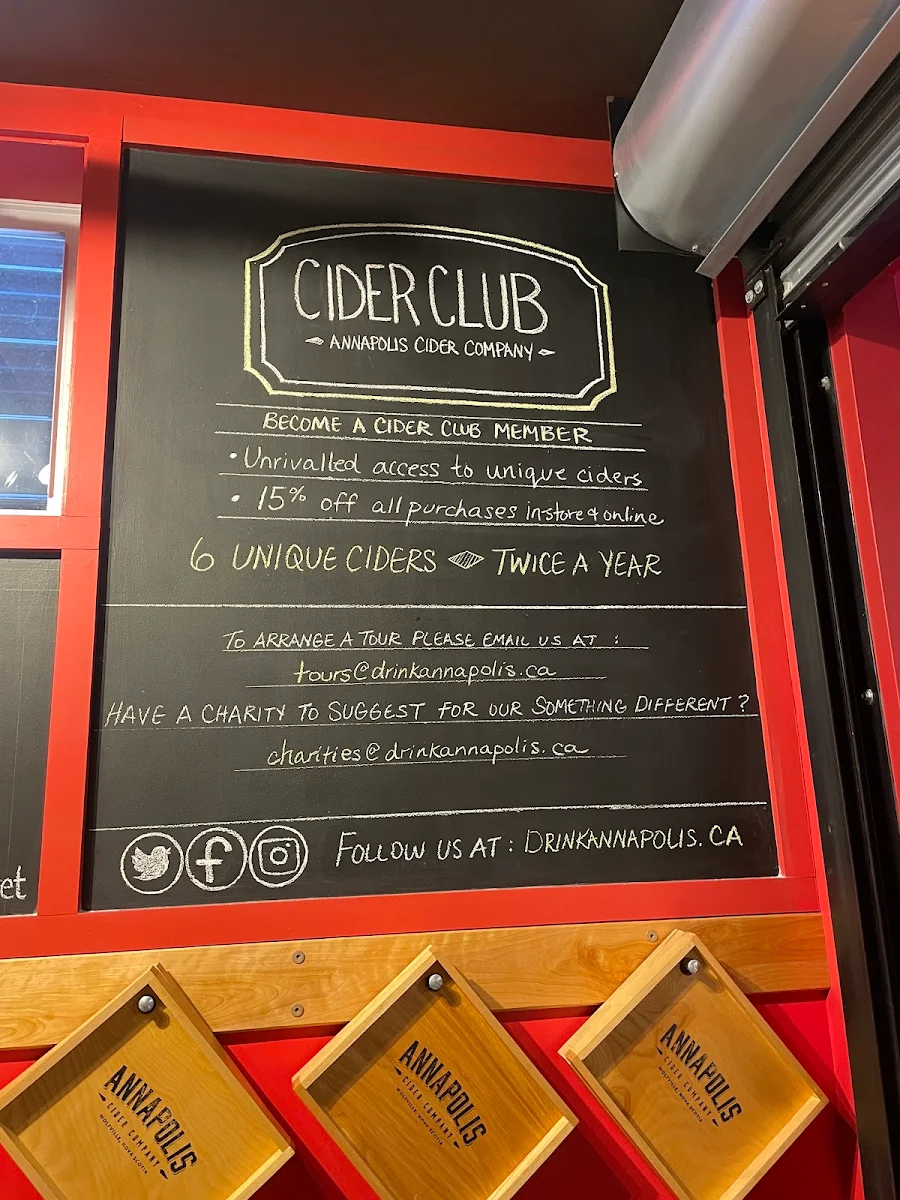 CIDER CLUB
ANNAPOLIS CIDER COMPANY
BECOME A CIDER CLUB MEMBER
• Unrivalled access to unique ciders
• 15% off all purchases in-store & online
6 UNIQUE CIDERS TWICE A YEAR
TO ARRANGE A TOUR PLEASE EMAIL US AT :
tours@drinkannapolis.ca
HAVE A CHARITY TO SUGGEST FOR OUR SOMETHING DIFFERENT ?
charities@drinkannapolis.ca
f FOLLOW US AT : DRINKANNAPOLIS.CA
et
ANNAPOLIS
CIDER COMPANY
WOLFVILLE, NOVA SCOTIA
ANNAPOLIS
CIDER COMPANY
WOLFVILLE, NOVA SCOTIA
ANNAPOLIS
CIDER COMPANY
WOLFVILLE, NOVA SCOTIA